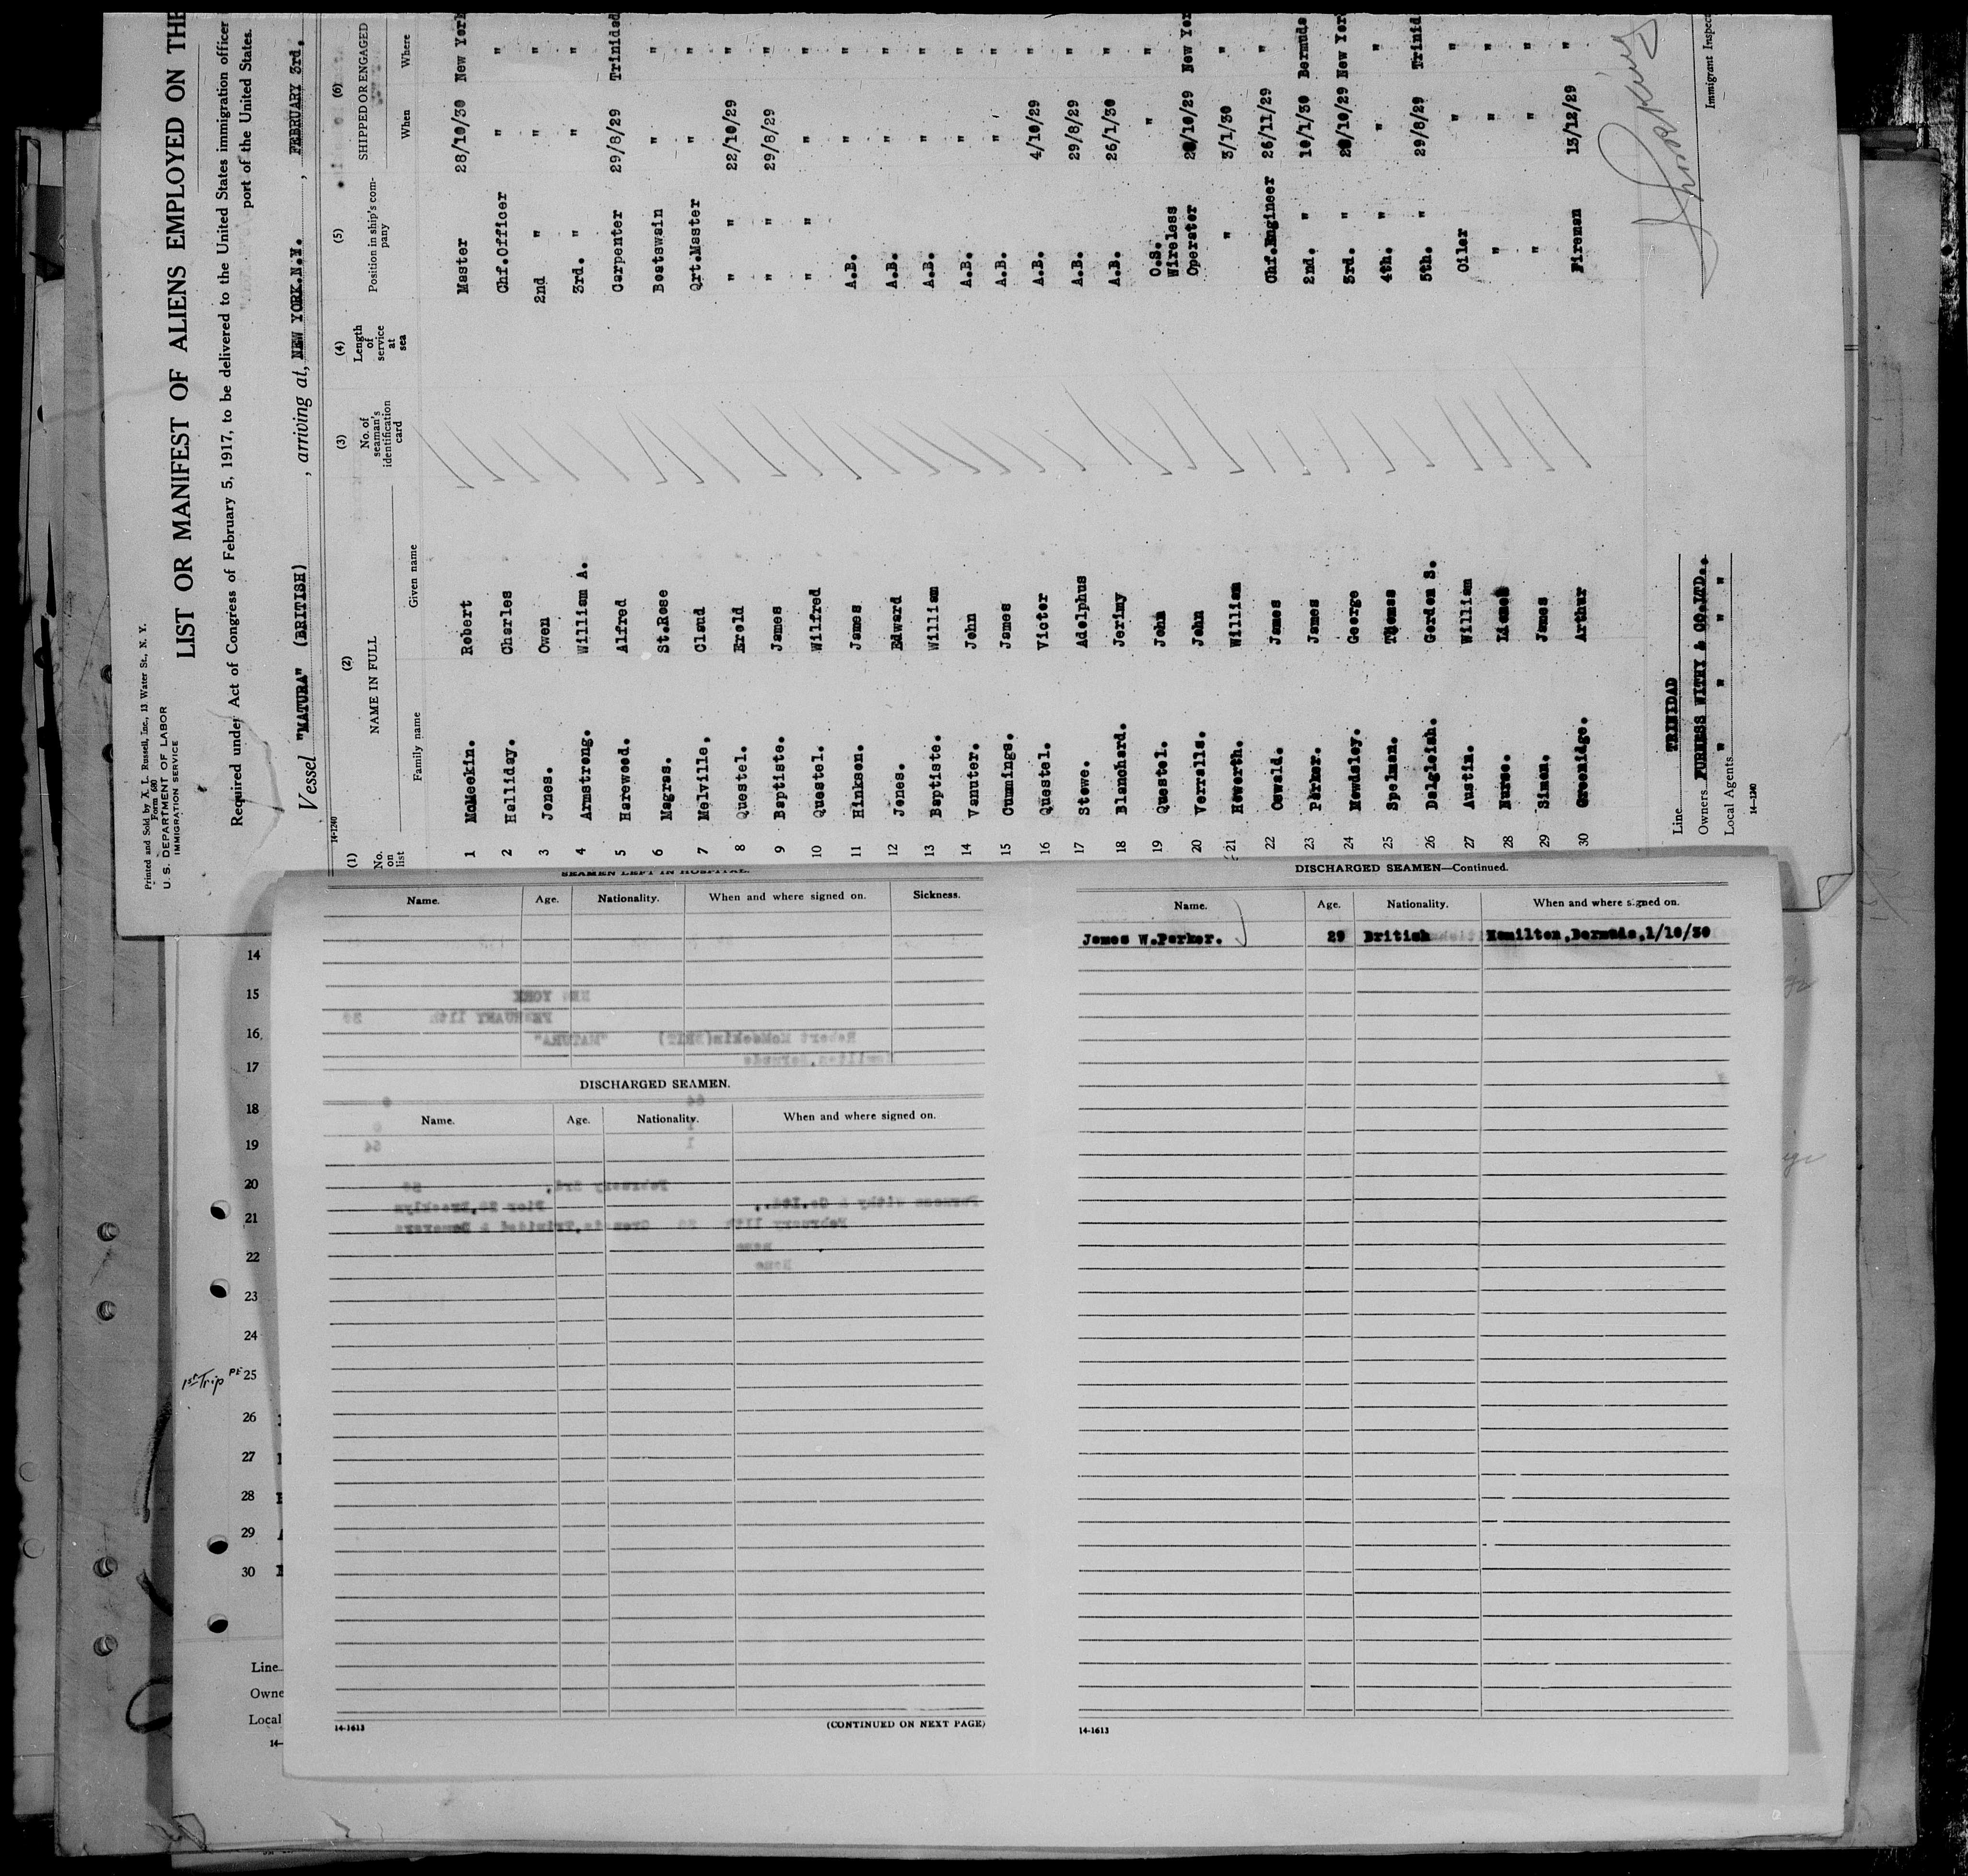 Printed and Sold by X. L. Russell, Inc., 13 Water St., N. Y.
Form 680
U. S. DEPARTMENT OF LABOR
IMMIGRATION SERVICE
LIST OR MANIFEST OF ALIENS EMPLOYED ON THE
Required under Act of Congress of February 5, 1917, to be delivered to the United States immigration officer
port of the United States.
Vessel "MATURA" (BRITISH), arriving at, NEW YORK.N.Y., FEBRUARY 3rd.
14-1240
(1) (2) (3) (4) (5) (6)
No. on list NAME IN FULL No. of seaman's identification card Length of service at sea Position in ship's company SHIPPED OR ENGAGED
Family name Given name When Where
1 McMeekin. Robert Master 28/10/30 New York
2 Halliday. Charles Chf.Officer " "
3 Jones. Owen 2nd " " "
4 Armstrong. William A. 3rd. " " "
5 Harewood. Alfred Carpenter 29/8/29 Trinidad
6 Magras. St.Rose Boatswain " "
7 Melville. Claud Qrt.Master " "
8 Questel. Erold " " 22/10/29 "
9 Baptiste. James " " 29/8/29 "
10 Questel. Wilfred " " " "
11 Hinkson. James A.B. " "
12 Jones. Edward A.B. " "
13 Baptiste. William A.B. " "
14 Vanuter. John A.B. " "
15 Cummings. James A.B. " "
16 Questel. Victor A.B. 4/10/29 "
17 Stowe. Adolphus A.B. 29/8/29 "
18 Blanchard. Jerimy A.B. 26/1/30 "
19 Questel. John O.S. " "
20 Verralls. John Wireless Operator /10/29 New Yor
21 Howorth. William " 3/1/30 "
22 Oswald. James Chf.Engineer 26/11/29 "
23 Parker. James 2nd. " 10/1/30 Bermuda
24 Newdsley. George 3rd. " /10/29 New Yor
25 Spelman. Thomas 4th. " " "
26 Dalgleish. Gordon S. 5th. " 29/8/29 Trinid
27 Austin. William Oiler " "
28 Nurse. " " "
29 Simon. James " " "
30 Greenidge. Arthur Fireman 13/12/29 "
Immigrant Inspec
Line TRINIDAD
Owners FURNESS WITHY & CO.LTD.,
Local Agents " " " "
14-1240
SEAMEN LEFT IN HOSPITAL.
Name. Age. Nationality. When and where signed on. Sickness.
DISCHARGED SEAMEN.
Name. Age. Nationality. When and where signed on.
14-1613 (CONTINUED ON NEXT PAGE)
DISCHARGED SEAMEN—Continued.
Name. Age. Nationality. When and where signed on.
James W.Parker. 29 British Hamilton,Bermuda,1/10/30
14-1613
14
15
16
17
18
19
20
21
22
23
24
1st Trip PE 25
26
27
28
29
30
Line
Owne
Local
14-